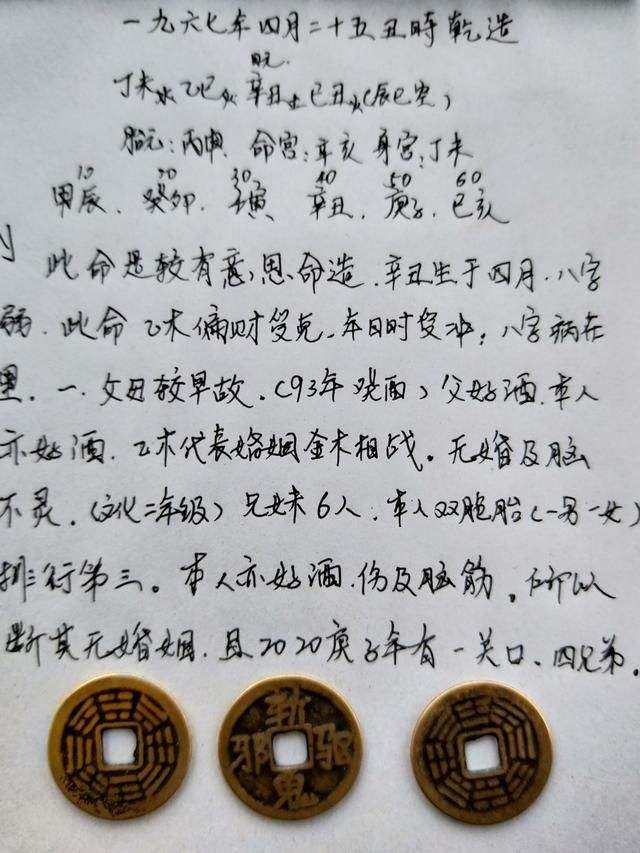 一九六七年四月二十五丑時乾造
日元
丁未水乙巳火辛丑土己丑火(辰巳空)
胎元:丙申 命宫:辛亥 身宫:丁未
10 20 30 40 50 60
甲辰.癸卯.壬寅、辛丑.庚子.己亥
此命是较有意思命造.辛丑生于四月.八字
弱.此命乙木偏财受克.年日时受冲;八字病在
里.一.父母较早故.(93年癸酉)父好酒.本人
亦好酒.乙木代表婚姻金木相战。无婚及脑
不灵.(文化二年级)兄妹6人.本人双胞胎(一男一女)
排行第三。本人亦好酒.伤及脑筋。所以
断其无婚姻.且2020庚子年有一关口、四兄弟。
斬邪驱鬼